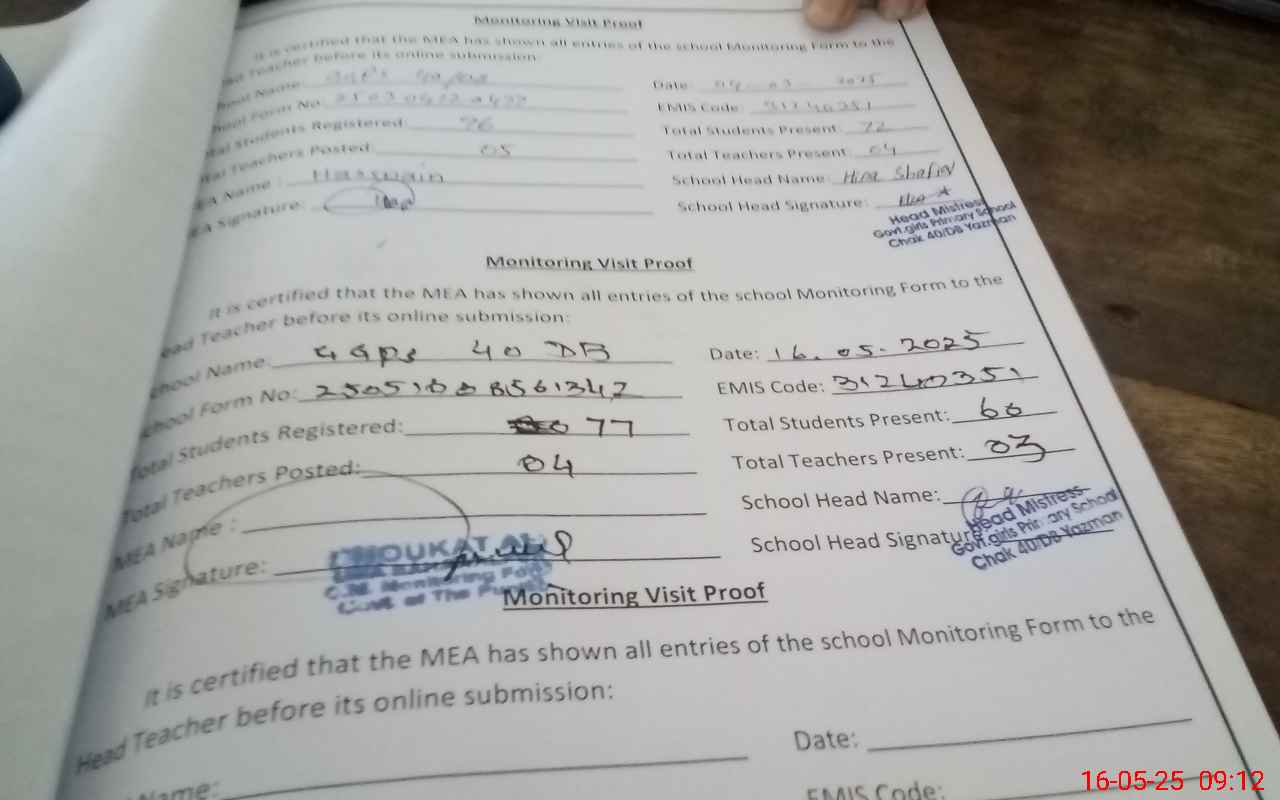 Monitoring Visit Proof
It is certified that the MEA has shown all entries of the school Monitoring Form to the
Teacher before its online submission:
Name: Date: 04 03 2025
Form No: EMIS Code: 31240351
Students Registered: 76 Total Students Present: 72
Teachers Posted: 05 Total Teachers Present: 04
Name : Hassnain School Head Name: Hina Shafiq
Signature: School Head Signature:
Head Mistress
Govt.girls Primary School
Chak 40/DB Yazman
Monitoring Visit Proof
It is certified that the MEA has shown all entries of the school Monitoring Form to the
ead Teacher before its online submission:
chool Name: GGPS 40 DB Date: 16.05.2025
chool Form No: EMIS Code: 31240351
Total Students Registered: 77 Total Students Present: 60
Total Teachers Posted: 04 Total Teachers Present: 03
MEA Name : School Head Name:
MEA Signature: School Head Signature
Head Mistress
Govt.girls Primary School
Chak 40/DB Yazman
SHOUKAT ALI
C.M. Monitoring Force
Govt of The Punjab
Monitoring Visit Proof
It is certified that the MEA has shown all entries of the school Monitoring Form to the
Head Teacher before its online submission:
Name: Date:
EMIS Code:
16-05-25 09:12